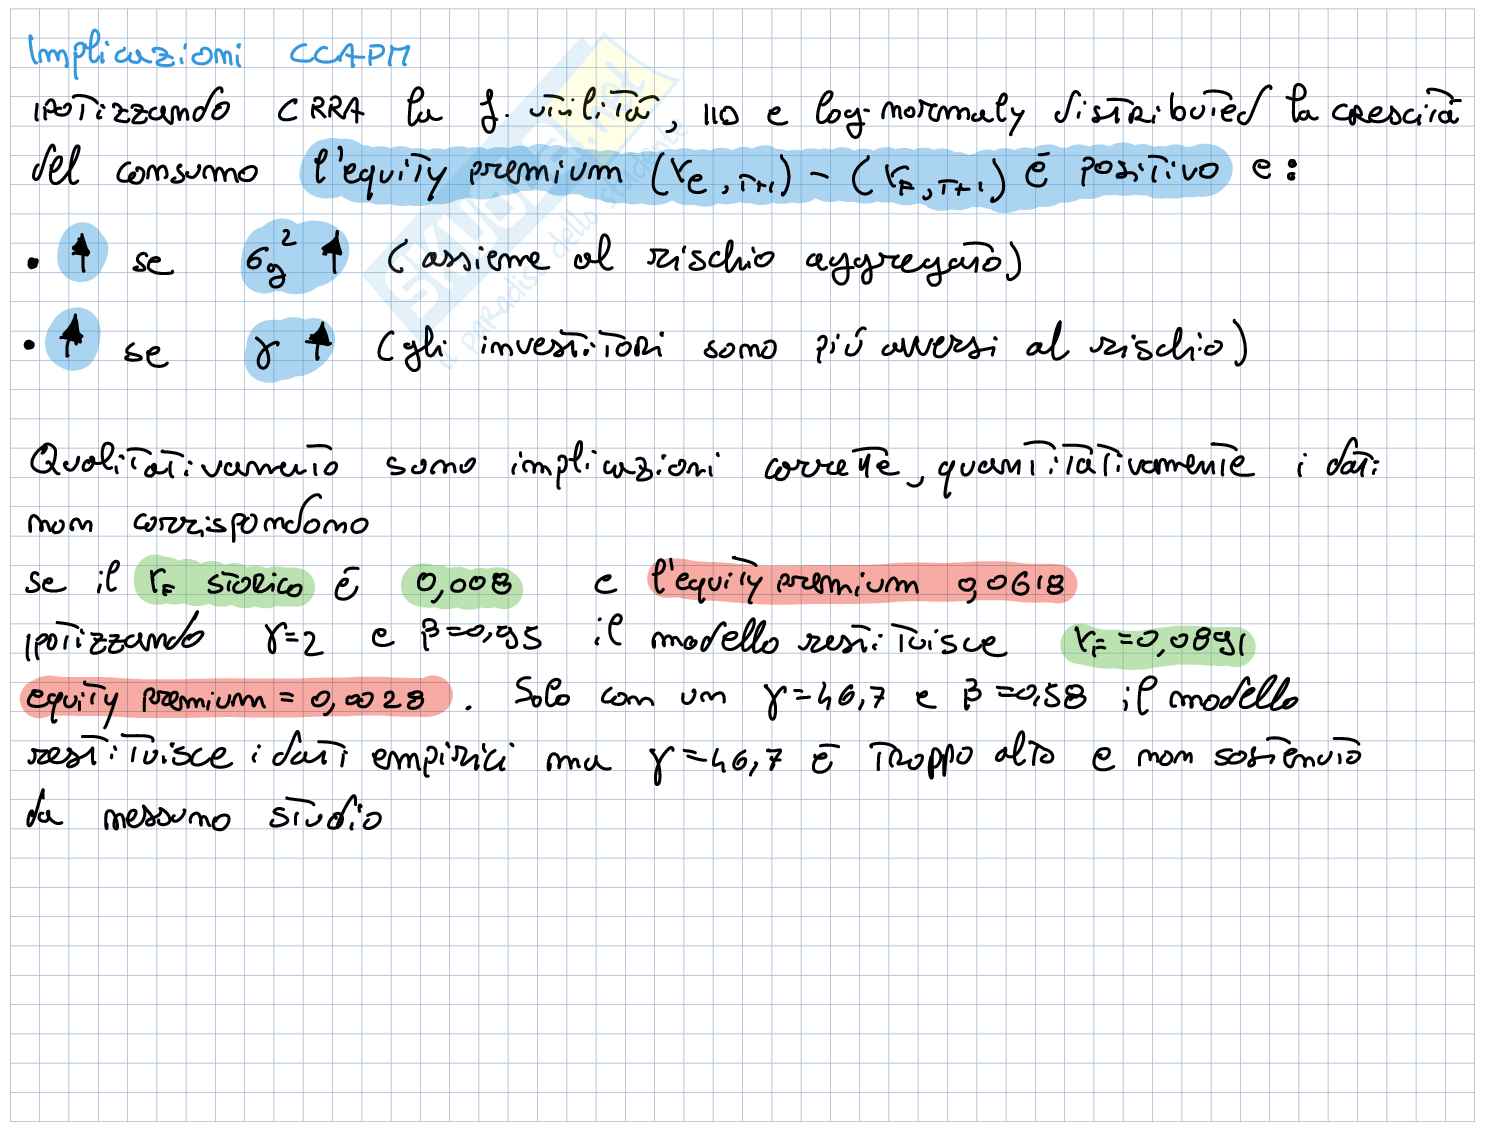 Implicazioni CCAPM
ipotizzando CRRA la f. utilità, IID e log-normaly distribuied la crescita
del consumo l'equity premium (re,t+1) - (rF,t+1) é positivo e:
• ↑ se σg² ↑ (assieme al rischio aggregato)
• ↑ se γ ↑ (gli investitori sono più avversi al rischio)
Qualitativamento sono implicazioni corrette, quantitativamente i dati
non corrispondono
se il rF storico é 0,008 e l'equity premium 0,0618
ipotizzando γ=2 e β=0,95 il modello restituisce rF=0,0891
equity premium = 0,0028. Solo con un γ=46,7 e β=0,58 il modello
restituisce i dati empirici ma γ=46,7 é troppo alto e non sostenuto
da nessuno studio